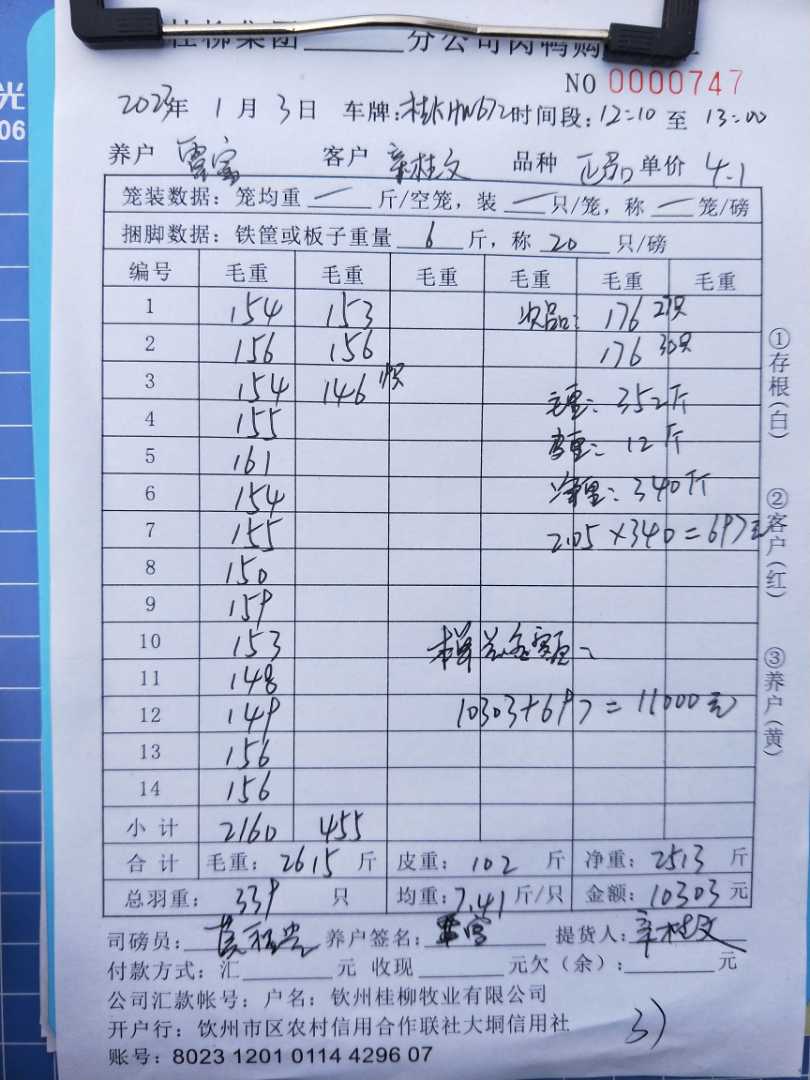 桂柳集团______分公司肉鸭购
NO 0000747
2023年 1月 3日 车牌: 时间段:12:10 至 13:00
养户 雷富 客户 辛桂文 品种 正品 单价 4.1
笼装数据: 笼均重 一 斤/空笼, 装 一 只/笼, 称 一 笼/磅
捆脚数据: 铁筐或板子重量 6 斤, 称 20 只/磅
编号 毛重 毛重 毛重 毛重 毛重 毛重
1 154 153 次品: 176 27只
2 156 156 176 30只
3 154 146 19只 毛重: 352斤
4 155 皮重: 12斤
5 161
6 154 净重: 340斤
7 155 2.05×340=697元
8 150
9 159
10 153 本单总金额:
11 148
12 149 10303+697=11000元
13 156
14 156
小计 2160 455
合计 毛重: 2615 斤 皮重: 102 斤 净重: 2513 斤
总羽重: 339 只 均重: 7.41 斤/只 金额: 10303 元
司磅员: 养户签名: 雷富 提货人: 辛桂文
付款方式: 汇______元 收现______元欠(余):______元
公司汇款帐号: 户名: 钦州桂柳牧业有限公司
开户行: 饮州市区农村信用合作联社大垌信用社
账号: 8023 1201 0114 4296 07
3)
①存根(白)
②客户(红)
③养户(黄)
光
06